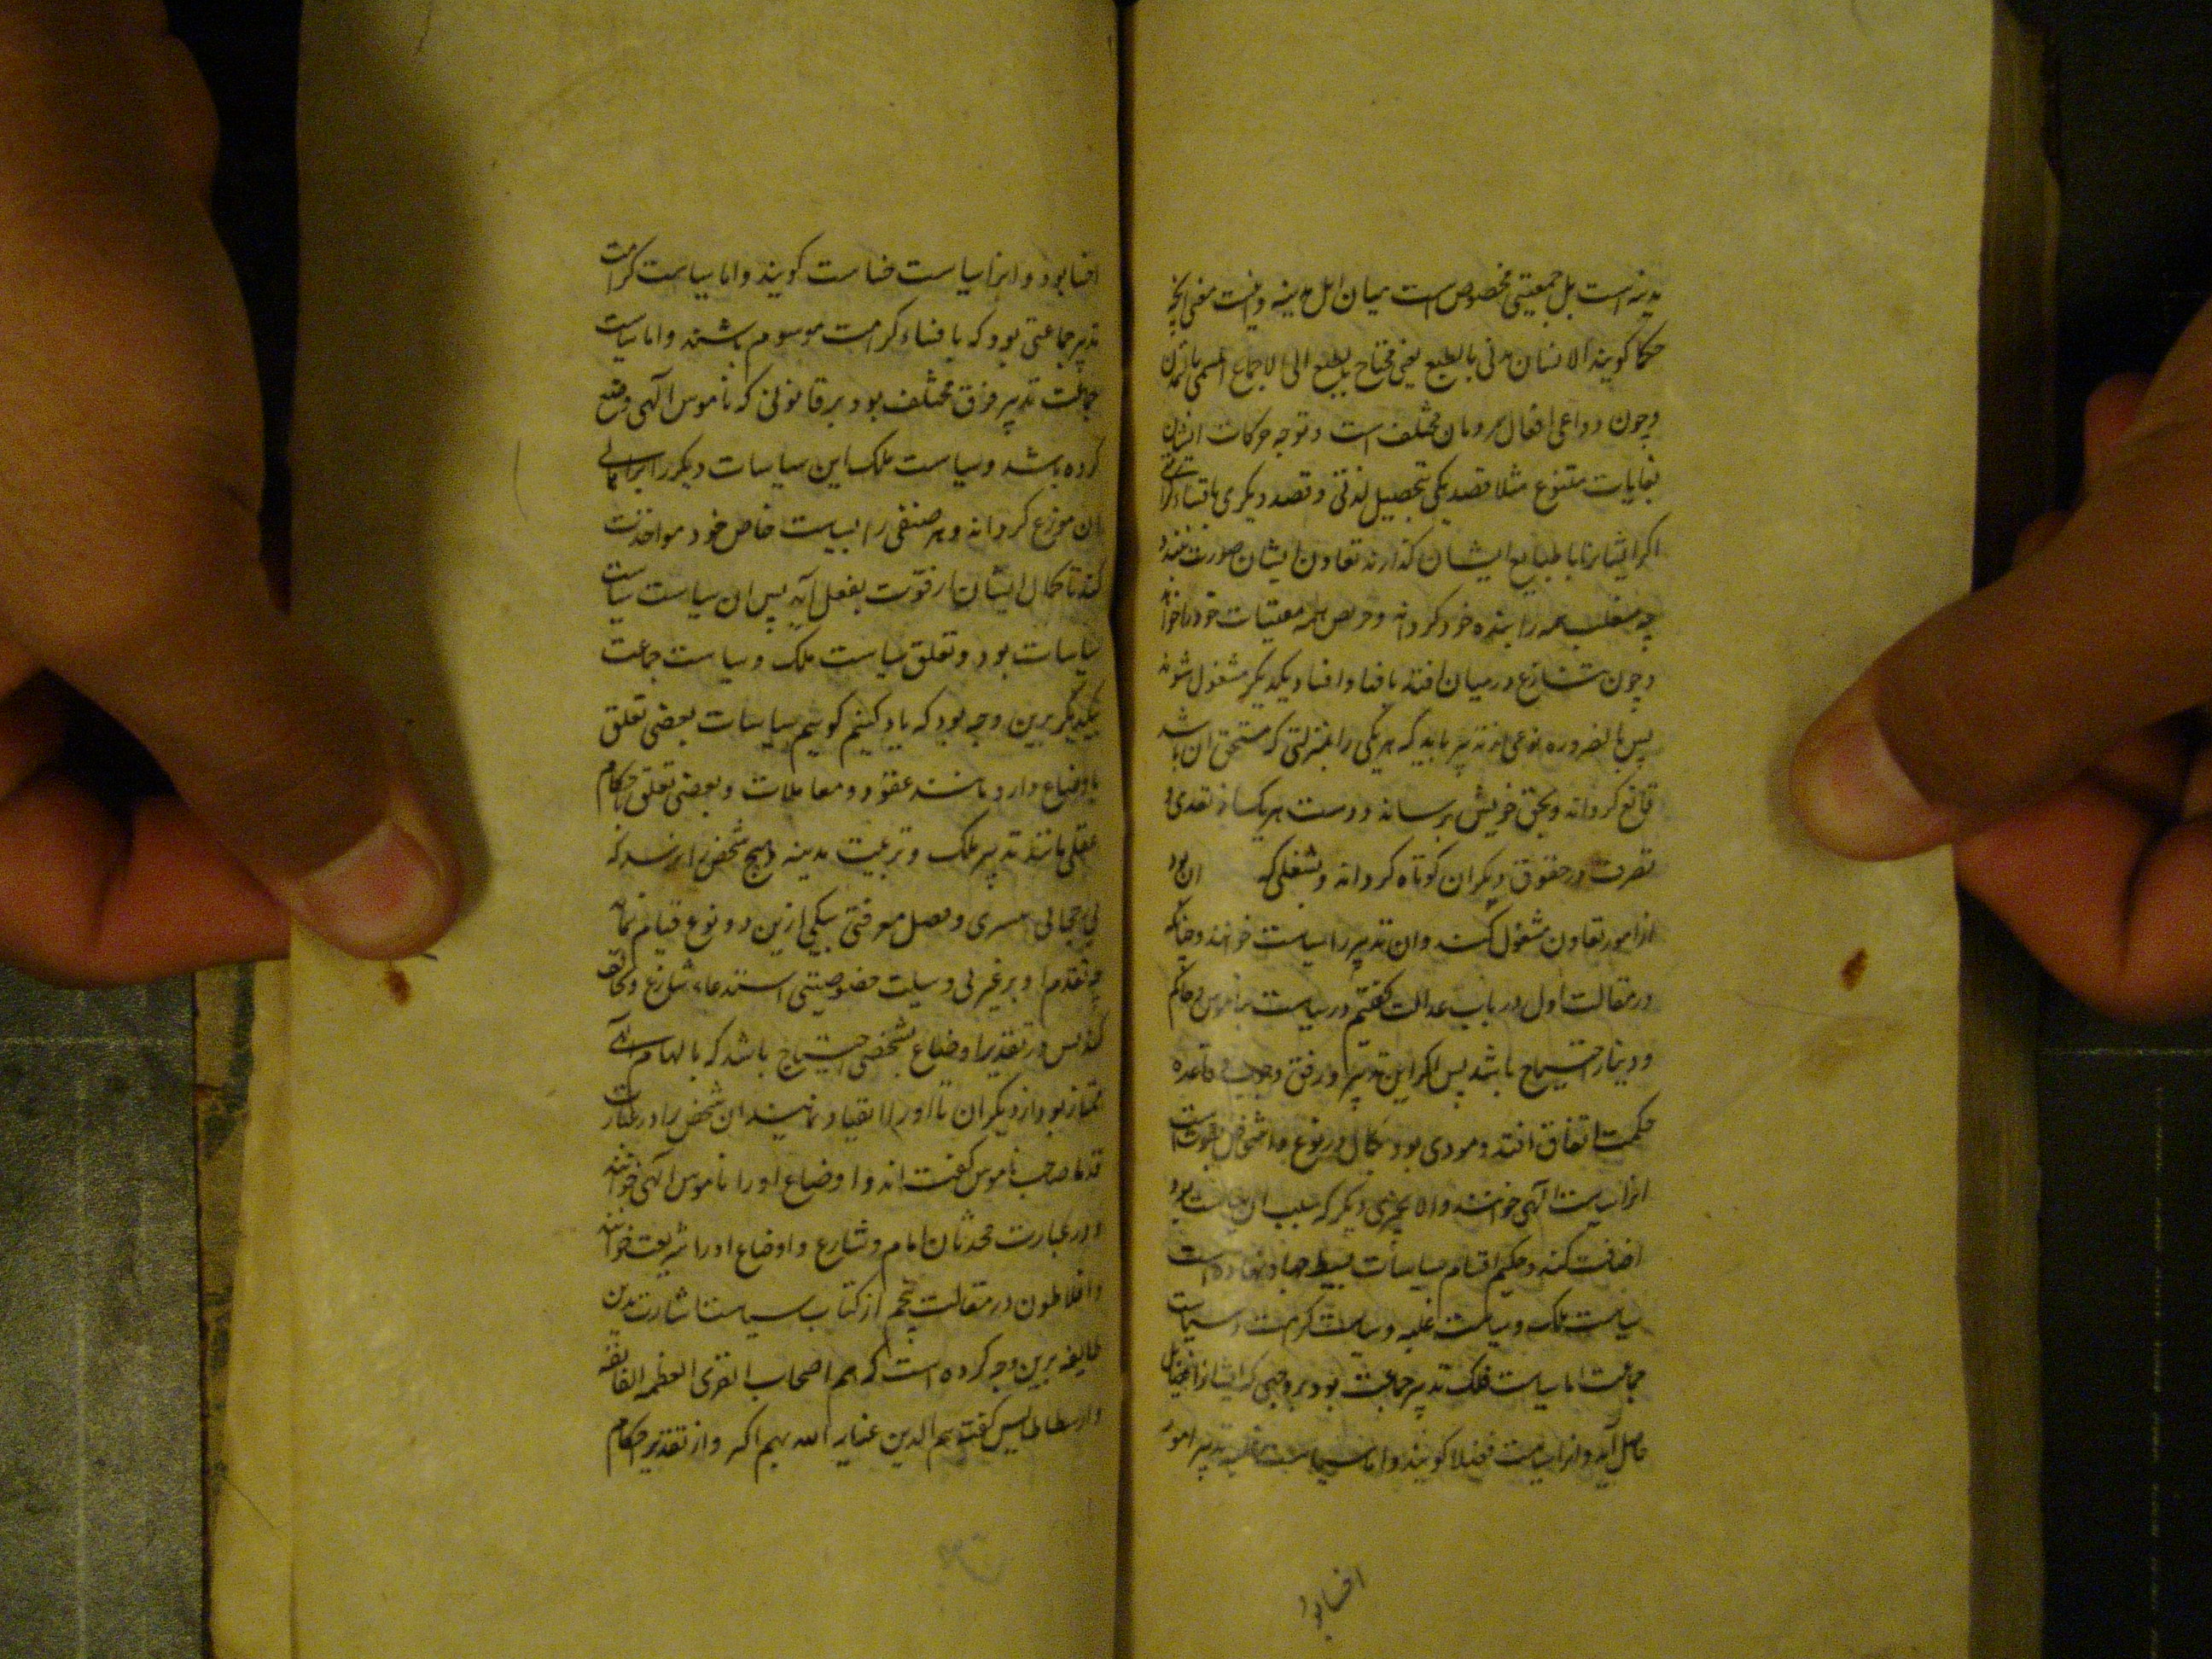 مدینه است بل جمعیتی مخصوص است میان اهل مدینه و اینست معنی آنچه
حکما کویند الانسان مدنی بالطبع یعنی محتاج بالطبع الی الاجتماع المسمی بالتمدن
و چون دواعی افعال مردمان مختلف است و توجه حرکات ایشان
بغایات متنوع مثلا قصد یکی بتحصیل لذتی و قصد دیکری باقتناء کرامتی
اکر ایشانرا با طبایع ایشان کذارند تعاون ایشان صورت نبندد
چه متغلب همه را بنده خود کرداند و حریص همه مقتنیات خود را خواهد
و چون تنازع در میان افتد بافنا و افساد یکدیکر مشغول شوند
پس بالضروره نوعی از تدبیر باید که هر یکی را بمنزلتی که مستحق آن باشد
قانع کرداند و بحق خویش برساند و دست هر یک از تعدی و
تصرف در حقوق دیکران کوتاه کرداند و بشغلی که ان بود
از امور تعاون مشغول کند و ان تدبیر را سیاست خوانند و چنانکه
در مقالت اول در باب عدالت کفتیم در سیاست بناموس و حاکم
و دینار احتیاج باشد پس اکر این تدبیر بر وفق وجوب و قاعده
حکمت اتفاق افتد و مودی بود بکمالی که در نوع و اشخاص بقوت است
انرا سیاست الهی خوانند و الا بچیزی دیکر که سبب آن سیاست بود
اضافت کنند و حکیم اقسام سیاسات بسیط چهار نهاده است
سیاست ملک و سیاست غلبه و سیاست کرامت و سیاست
جماعت اما سیاست ملک تدبیر جماعت بود بر وجهی که ایشانرا فضایل
حاصل آید و انرا سیاست فضلا کویند و اما سیاست غلبه تدبیر امور
اخسا بود
اخسا بود و انرا سیاست خساست کویند و اما سیاست کرامت
تدبیر جماعتی بود که باقتناء کرامت موسوم باشند و اما سیاست
جماعت تدبیر فرق مختلف بود بر قانونی که ناموس الهی وضع
کرده باشد و سیاست ملک این سیاسات دیکر را بر اهالی
ان موزع کرداند و هر صنفی را بسیاست خاص خود مواخذت
کند تا کمال ایشان از قوت بفعل آید پس ان سیاست سیاست
سیاسات بود و تعلق سیاست ملک و سیاست جماعت
بیکدیکر برین وجه بود که یاد کنیم کوییم سیاسات بعضی تعلق
باوضاع دارد مانند عقود و معاملات و بعضی تعلق باحکام
عقلی مانند تدبیر ملک و ترتیب مدینه و هیچ شخص را نرسد که
بی رجحان تمیزی و فضل معرفتی بیکی ازین دو نوع قیام نماید
چه تقدم او بر غیر بی وسیلت خصوصیتی استدعاء تنازع و تخالف
کند پس در تقدیر اوضاع بشخصی احتیاج باشد که بالهام الهی
ممتاز بود از دیکران تا او را انقیاد نمایند و ان شخص را در عبارت
قدما صاحب ناموس کفته اند و اوضاع او را ناموس الهی خوانند
و در عبارت محدثان امام و شارع و اوضاع او را شریعت خوانند
و افلاطون در مقالت پنجم از کتاب سیاست اشارت بدین
طایفه برین وجه کرده است که هم اصحاب القوی العظیمه الفایقه
و ارسطاطالیس کفته هم الذین عنایة الله بهم اکبر و از تقدیر احکام